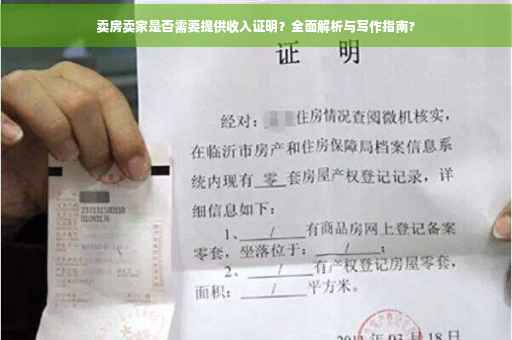 卖房卖家是否需要提供收入证明？全面解析与写作指南?
证 明
经对：住房情况查阅微机核实，
在临沂市房产和住房保障局档案信息系
统内现有 零 套房屋产权登记记录，详
细信息如下：
1、 / 有商品房网上登记备案
零套，坐落位于： / ；
2、 / 有产权登记房屋零套，
面积： / 平方米。
03 月 18 日